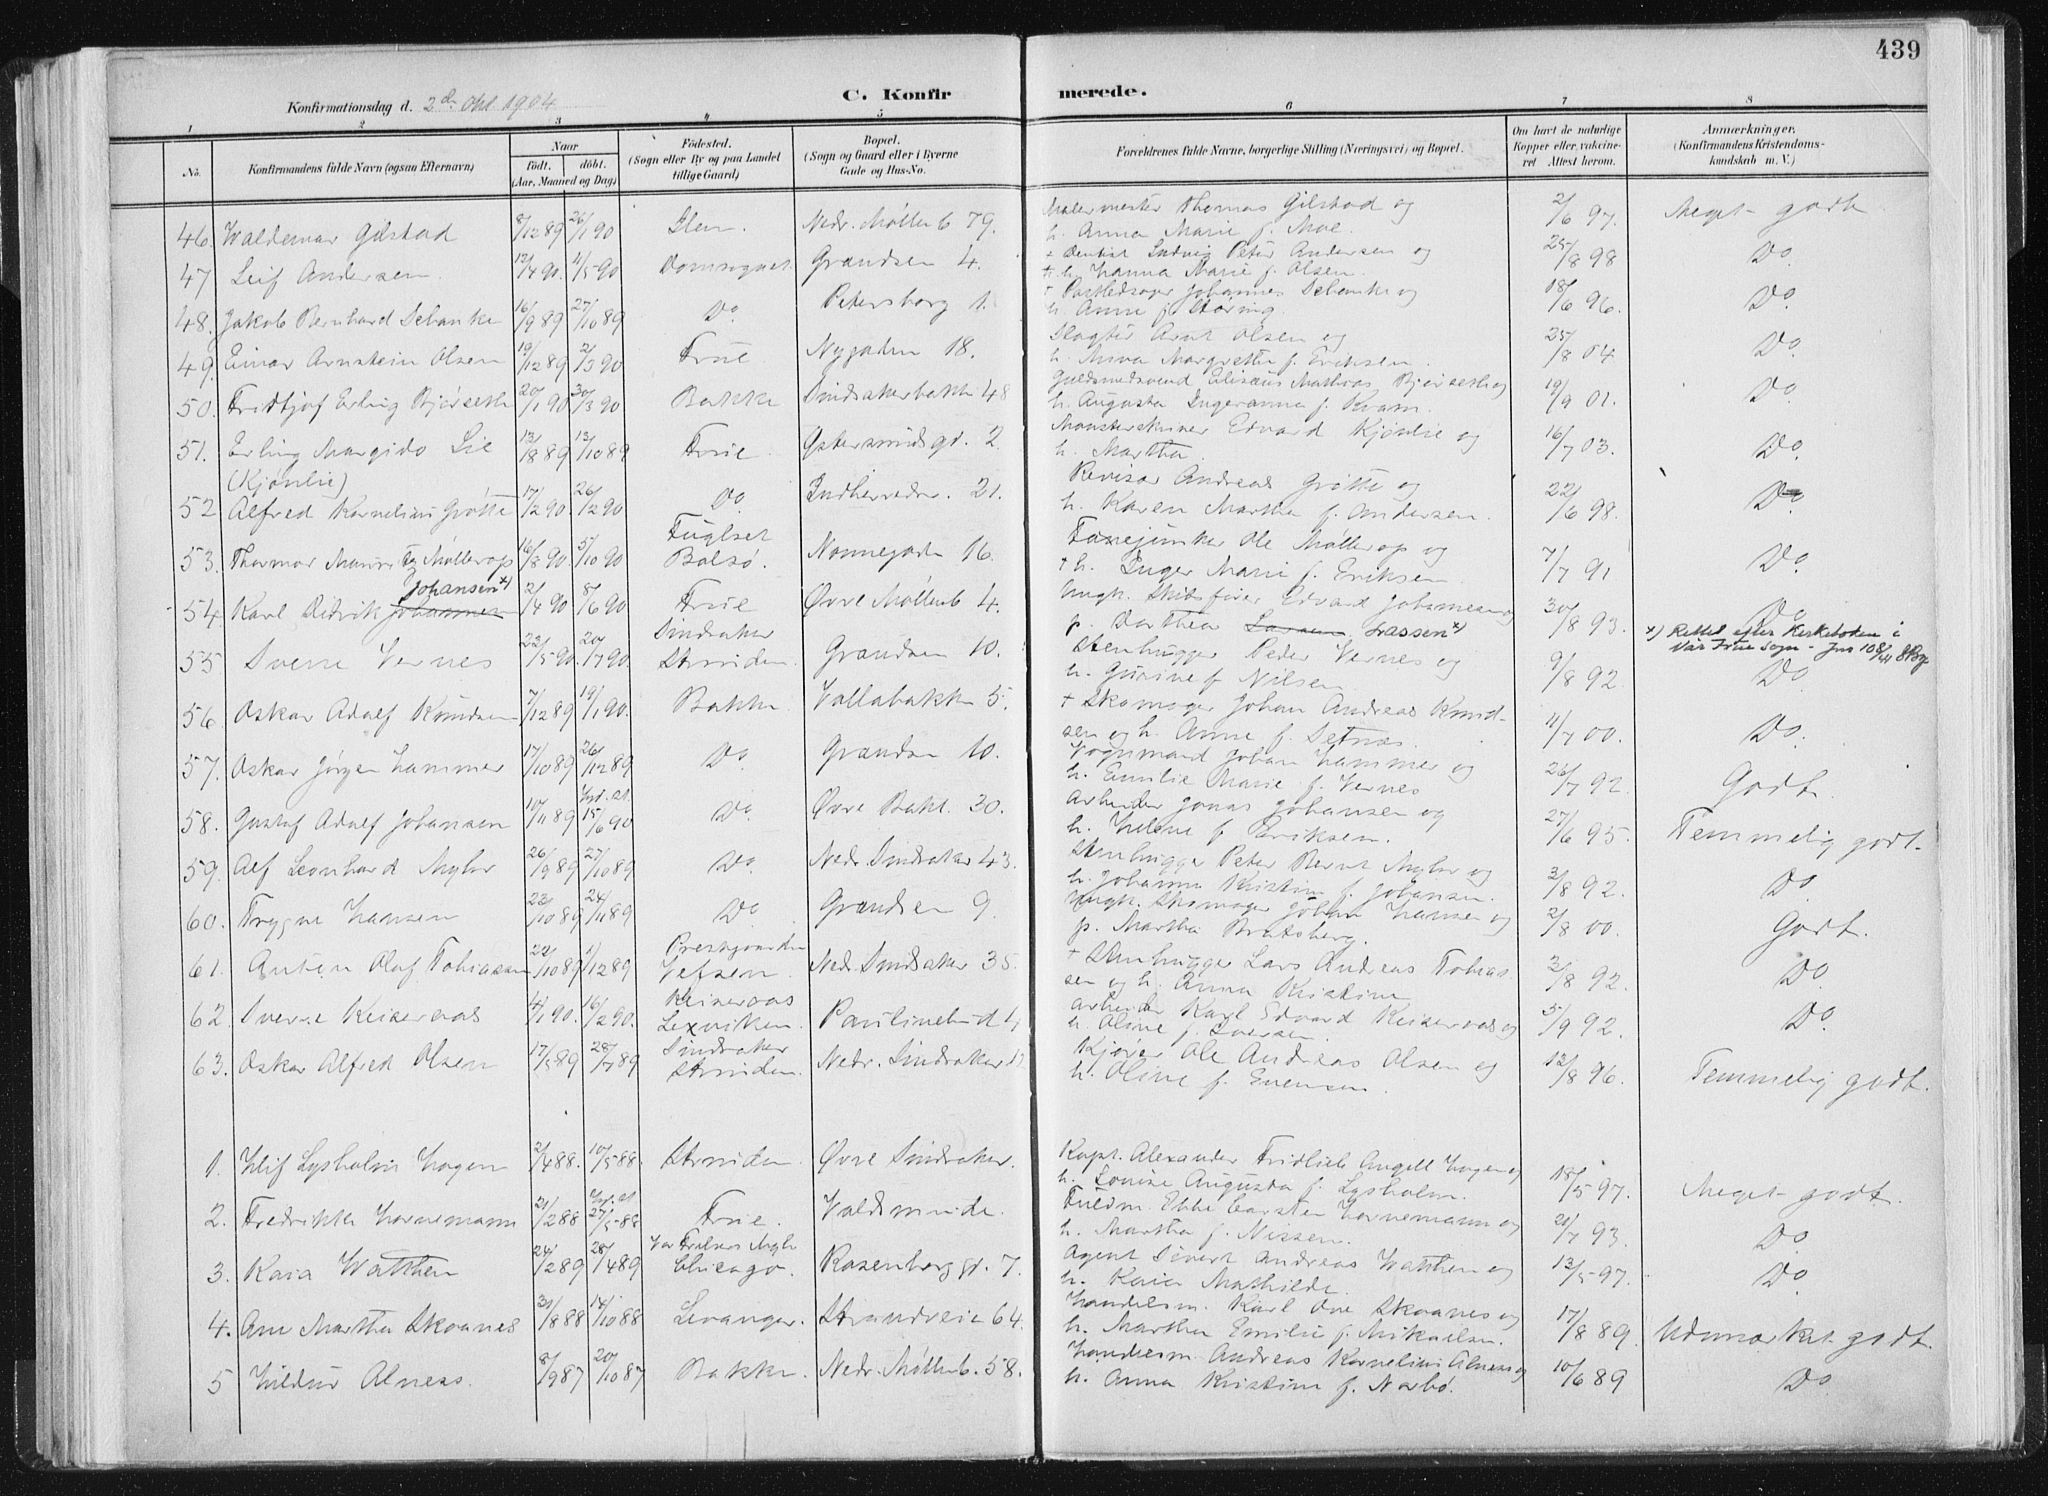 439
C. Konfirmerede.
Konfirmationsdag d. 2den Okt. 1904
1 2 3 4 5 6 7 8
No. Konfirmandens fulde Navn (ogsaa Efternavn) Naar født. døbt. (Aar, Maaned og Dag) Fødested. (Sogn eller By og paa Landet tillige Gaard) Bopæl. (Sogn og Gaard eller i Byerne Gade og Hus-No. Forældrenes fulde Navne, borgerlige Stilling (Næringsvei) og Bopæl. Om havt de naturlige Kopper eller, vakcineret Attest herom. Anmærkninger. (Konfirmandens Kristendomskundskab m. V.)
46. Waldemar Gilstad 8/12 89 26/1 90 Ilen. Nedr. Møllenb 79. Malermester Thomas Gilstad og
h. Anna Marie f. Moe. 2/6 97. Meget godt.
47 Leif Andersen 12/4 90. 4/5 90 Domsognet. Grændsen 4. + Dentist Ludvig Peter Andersen og
+ h. Hanna Marie f. Olsen. 25/8 98 Do
48. Jakob Bernhard Schanke 16/9 89 27/10 89 Do Petersborg 1. + Postledsager Johannes Schanke og
h. Anne f. Støring. 18/6 96. Do
49. Einar Arnstein Olsen 10/12 89 2/3 90 Frue Nygaden 18. Slagter Arnt Olsen og
h. Mina Margrethe f. Eriksen. 25/8 04 Do
50. Fridtjof Erling Bjørseth 20/1 90 30/3 90 Bakke Sindsakerbakke 48 Guldsmedsvend Elisæus Mathias Bjørseth og
h. Augusta Ingeranna f. Kvam. 19/9 01. Do
51. Erling Margido Lie 13/8 89 13/10 89 Frue. Østersundsgd. 2 Mønsterskriver Edvard Kjønlie og
(Kjønlie) h. Martha. 16/7 03. Do
52 Alfred Kornelius Grøtte 17/2 90. 26/2 90 Do Indherredsv. 21. Revisor Andreas Grøtte og
h. Karen Martha f. Andersen. 22/6 98. Do
53. Thormar Møllerop 16/8 90. 5/10 90 Fuglset
Bolsø. Nonnegaden 16. Fanejunker Ole Møllerop og
+ h. Inger Marie f. Eriksen. 7/7 91 Do
Johansen x)
54. Karl Didrik Johannesen 2/4 90 8/6 90 Frue Øvre Møllenb 4. Ungk. Skibsfører Edvard Johannesen og
p. Dorthea Lassen x) 30/8 93. Do
x) Rettet efter Kirkeboken i
Vår Frue sogn - Jnr 108/41 SBg.
55 Sverre Vernes 22/5 90. 20/7 90. Sindsaker
Strinden. Grændsen 10. Stenhugger Peder Vernes og
h. Gurine f Nilsen. 9/8 92. Do
56. Oskar Adolf Knudsen 7/12 89 19/1 90. Bakke. Vollabakken 5. + Skomager Johan Andreas Knud-
sen og h. Anne f. Setnæs. 11/7 00. Do.
57. Oskar Jørgen Hammer 17/10 89 26/12 89 Do Grændsen 10. Vognmand Johan Hammer og
h. Emilie Marie f. Vernes 26/7 92 Godt.
58. Gustaf Adolf Johansen 10/11 89 15/6 90 Do Øvre Bakl. 30. Arbeider Jonas Johansen og
h. Helene f. Eriksen. 27/6 95. Temmelig godt.
59. Alf Leonhard Myhr 26/9 89 27/10 89 Do Nedr. Sindsaker 43. Stenhugger Peter Bernt Myhr og
h. Johanna Kristine f. Johansen. 3/8 92. Do
60. Trygve Hansen 22/10 89 24/11 89 Do Grændsen 9. Ungk. Skomager Johan Hansen og
p. Martha Bratsberg. 2/8 00. Godt.
61. Anton Olaf Tobiassen 22/10 89 1/12 89 Prestgaarden
Vefsen. Nedr. Sindsaker 35. + Stenhugger Lars Andreas Tobias-
sen og h. Anna Kristine 2/8 92. Do
62. Sverre Keiseraas 4/1 90. 16/2 90. Keiseraas
Lexviken. Paulinelund 4 Arbeider Karl Edvard Keiseraas og
h. Oline f. Iversen. 5/9 92. Do
63. Oskar Alfred Olsen 17/5 89 28/7 89 Sindsaker
Strinden. Nedr. Sindsaker Kjører Ole Andreas Olsen og
h. Oline f. Evensen. 12/8 96. Temmelig godt.
1. Lysholm Hagen 2/4 88. 10/5 88. Strinden. Øvre Sindsaker. Kapt. Alexander Fridlieb Angell Hagen og
h. Louise Augusta f. Lysholm. 18/5 97. Meget godt.
2. Fredrikke Hornemann 21/2 88 27/5 88 Frue. Valdsminde. Fuldm. Ebbe Carsten Hornemann og
h. Martha f. Nissen. 21/7 93. Do
3. Kaia Watthen 24/2 89 28/4 89 Vor Frelsers Mgh
Chicago. Rosenborg gd. 7. Agent Sivert Andreas Watthen og
h. Kaia Mathilde. 13/5 97. Do
4. Ane Martha Skaanes 31/8 88 14/10 88 Levanger. Strandveie 64. Handelsm. Karl Ove Skaanes og
h. Martha Emilie f. Mikaelsen. 17/8 89. Udmærket godt
5 Hildur Alness. 8/9 87 20/10 87 Bakke. Nedr. Møllenb. 58. Handelsm. Andreas Kornelius Alness og
h. Anna Kristine f. Norbø. 10/6 89 Do